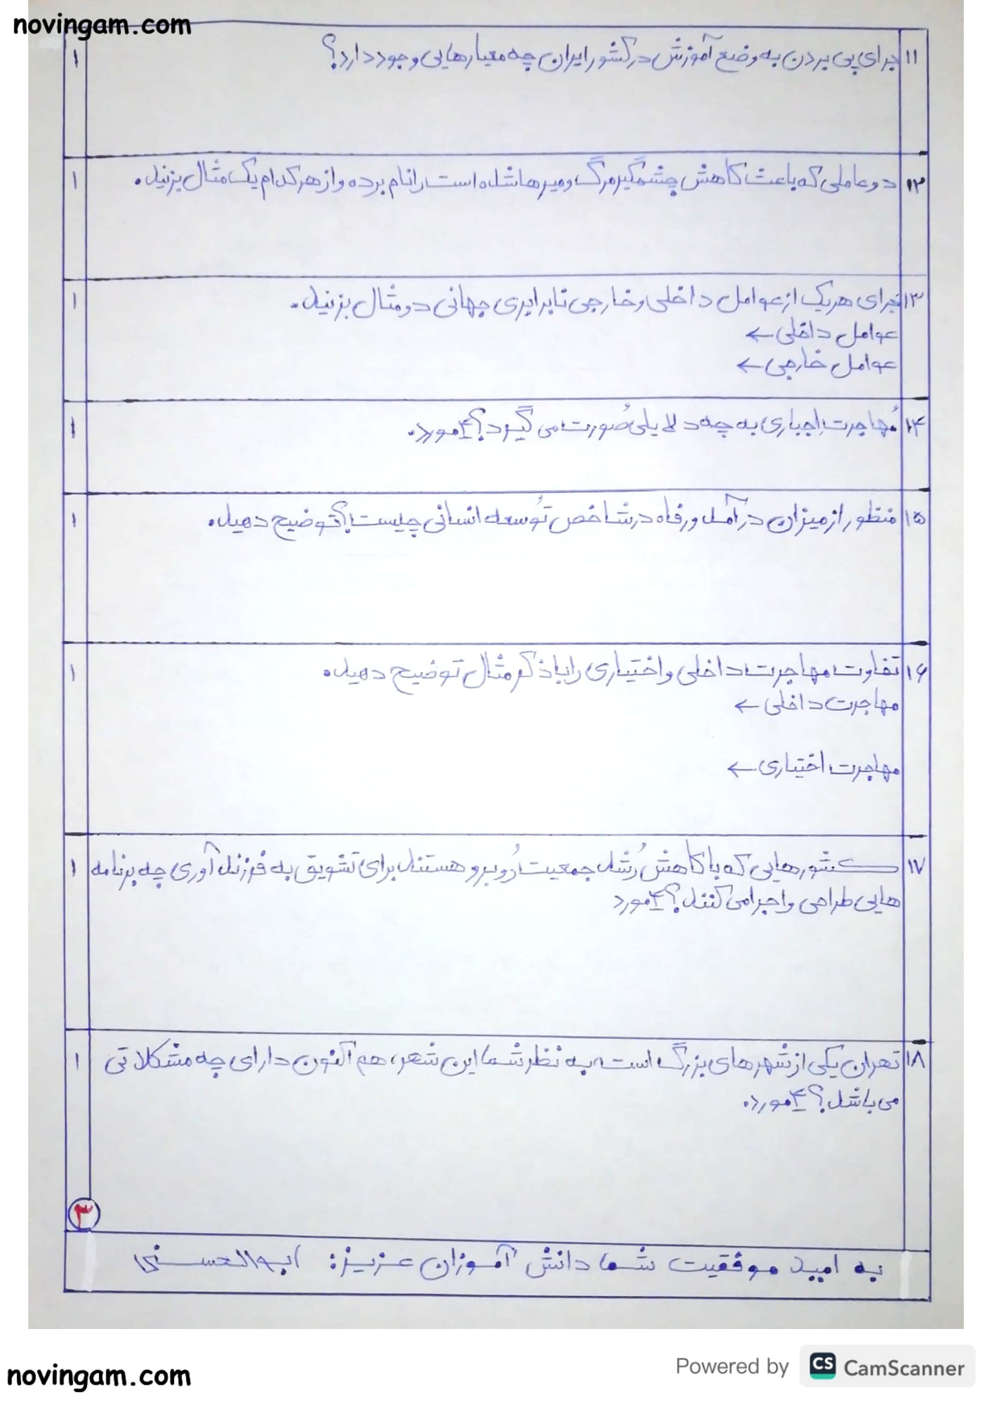 novingam.com
۱۱ برای پی بردن به وضع آموزش در کشور ایران چه معیارهایی وجود دارد؟ ۱
۱۲ دو عاملی که باعث کاهش چشمگیر مرگ و میرها شده است را نام برده و از هر کدام یک مثال بزنید. ۱
۱۳ برای هر یک از عوامل داخلی و خارجی نابرابری جهانی دو مثال بزنید. ۱
عوامل داخلی ←
عوامل خارجی ←
۱۴ مُهاجرت اِجباری به چه دلایلی صُورت می گیرد؟ ۴ مورد. ۱
۱۵ منظور از میزان درآمد و رفاه در شاخص تُوسعه انسانی چیست؟ توضیح دهید. ۱
۱۶ تفاوت مهاجرت داخلی و اختیاری را با ذکر مثال توضیح دهید. ۱
مهاجرت داخلی ←
مهاجرت اختیاری ←
۱۷ کشورهایی که با کاهش رُشد جمعیت رُوبرو هستند برای تشویق به فرزند آوری چه برنامه ۱
هایی طراحی و اجرا می کنند؟ ۴ مورد
۱۸ تهران یکی از شهرهای بزرگ است، به نظر شما این شهر، هم اکنون دارای چه مشکلاتی ۱
می باشد؟ ۴ مورد.
۳
به امید موفقیت شما دانش آموزان عزیز: ابوالحسنی
Powered by CS CamScanner
novingam.com